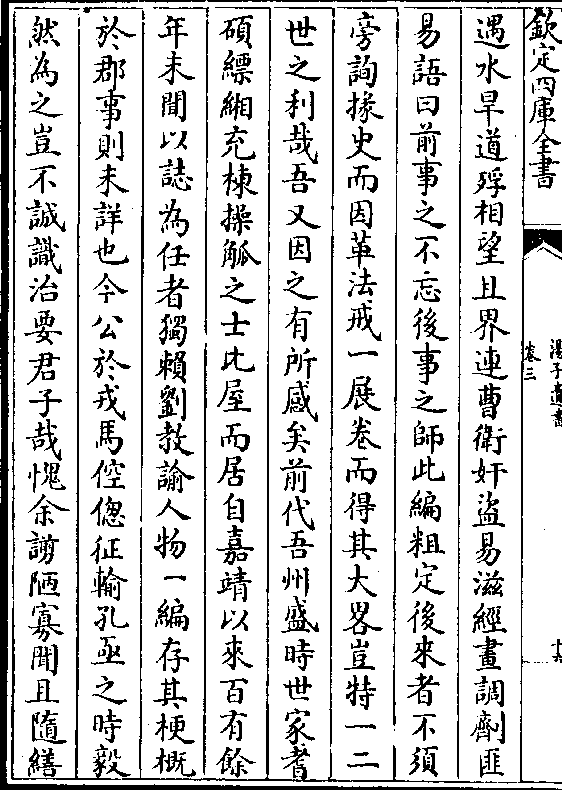 欽定四庫全書
湯子遺書
卷三
遇水旱道殍相望且界連曹衛奸盜易滋經畫調劑匪
易語曰前事之不忘後事之師此編粗定後來者不須
旁詢掾史而因革法戒一展卷而得其大畧豈特一二
世之利哉吾又因之有所感矣前代吾州盛時世家耆
碩縹緗充棟操觚之士比屋而居自嘉靖以來百有餘
年未聞以誌為任者獨賴劉教諭人物一編存其梗概
於郡事則未詳也今公於戎馬倥傯征輸孔亟之時毅
然為之豈不誠識治要君子哉愧余謭陋寡聞且隨繕